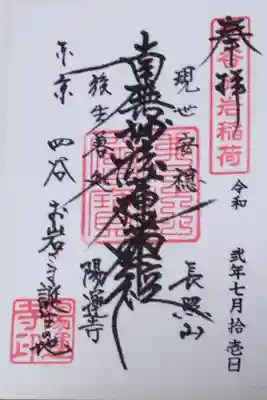 奉拝
四谷於岩稲荷
令和 弐年七月拾壱日
現世安穏
長照山
南無妙法
後生善処
陽運寺
東京 四谷 お岩さま誕生地
陽運寺印